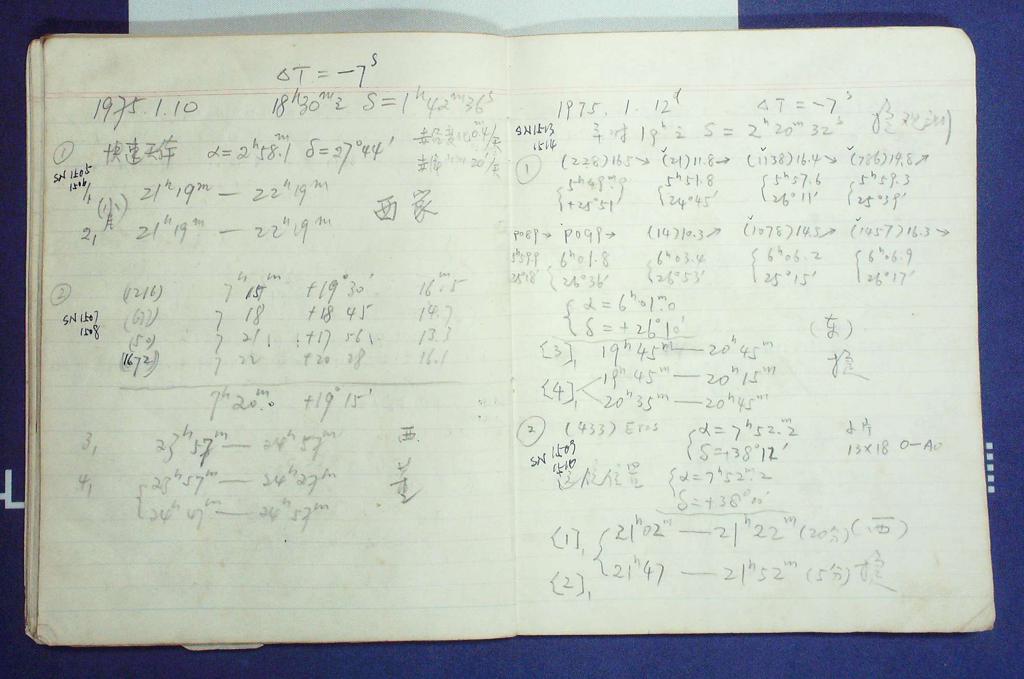 ΔT = -7ˢ
1975.1.10 18ʰ30ᵐ S = 1ʰ42ᵐ36ˢ
① 快速 α = 2ʰ58ᵐ.1 δ = 27°44′
SN 1505
21ʰ19ᵐ — 22ʰ19ᵐ
2, 21ʰ19ᵐ — 22ʰ19ᵐ 西
②
SN 1507
1508
(1216) 7ʰ 15ᵐ +19°30′ 16ᵐ.5
7 18 +18 45 14.7
(50) 7 21 +17 56 13.3
(1672) 7 22 +20 28 16.1
7ʰ20ᵐ.0 +19°15′
3, 23ʰ57ᵐ — 24ʰ57ᵐ 西
4, 23ʰ57ᵐ — 24ʰ27ᵐ
24ʰ47ᵐ — 24ʰ57ᵐ
1975. 1. 12ᵈ ΔT = -7ˢ
SN 1513
1514
19ʰ S = 2ʰ20ᵐ32ˢ
① (228)16.5→ (21)11.8→ (1138)16.4→ (786)14.8→
5ʰ49ᵐ.9 5ʰ51.8 5ʰ57.6 5ʰ59.3
+25°51′ 24°45′ 26°11′ 25°39′
P089→ P099→ (14)10.3→ (1078)14.5→ (1457)16.3→
5ʰ59.9 6ʰ01.8 6ʰ03.4 6ʰ06.2 6ʰ06.9
25°18′ 26°36′ 26°53′ 25°15′ 26°17′
α = 6ʰ01ᵐ.0
δ = +26°10′ (东)
[3], 19ʰ45ᵐ — 20ʰ45ᵐ
[4], 19ʰ45ᵐ — 20ʰ15ᵐ
20ʰ35ᵐ — 20ʰ45ᵐ
② (433) Eros α = 7ʰ52ᵐ.2
δ = +38°12′ 13×18 O-AO
SN 1509
1510
α = 7ʰ52ᵐ.2
δ = +38°
[1], 21ʰ02ᵐ — 21ʰ22ᵐ (20分) (西)
[2], 21ʰ47 — 21ʰ52ᵐ (5分)